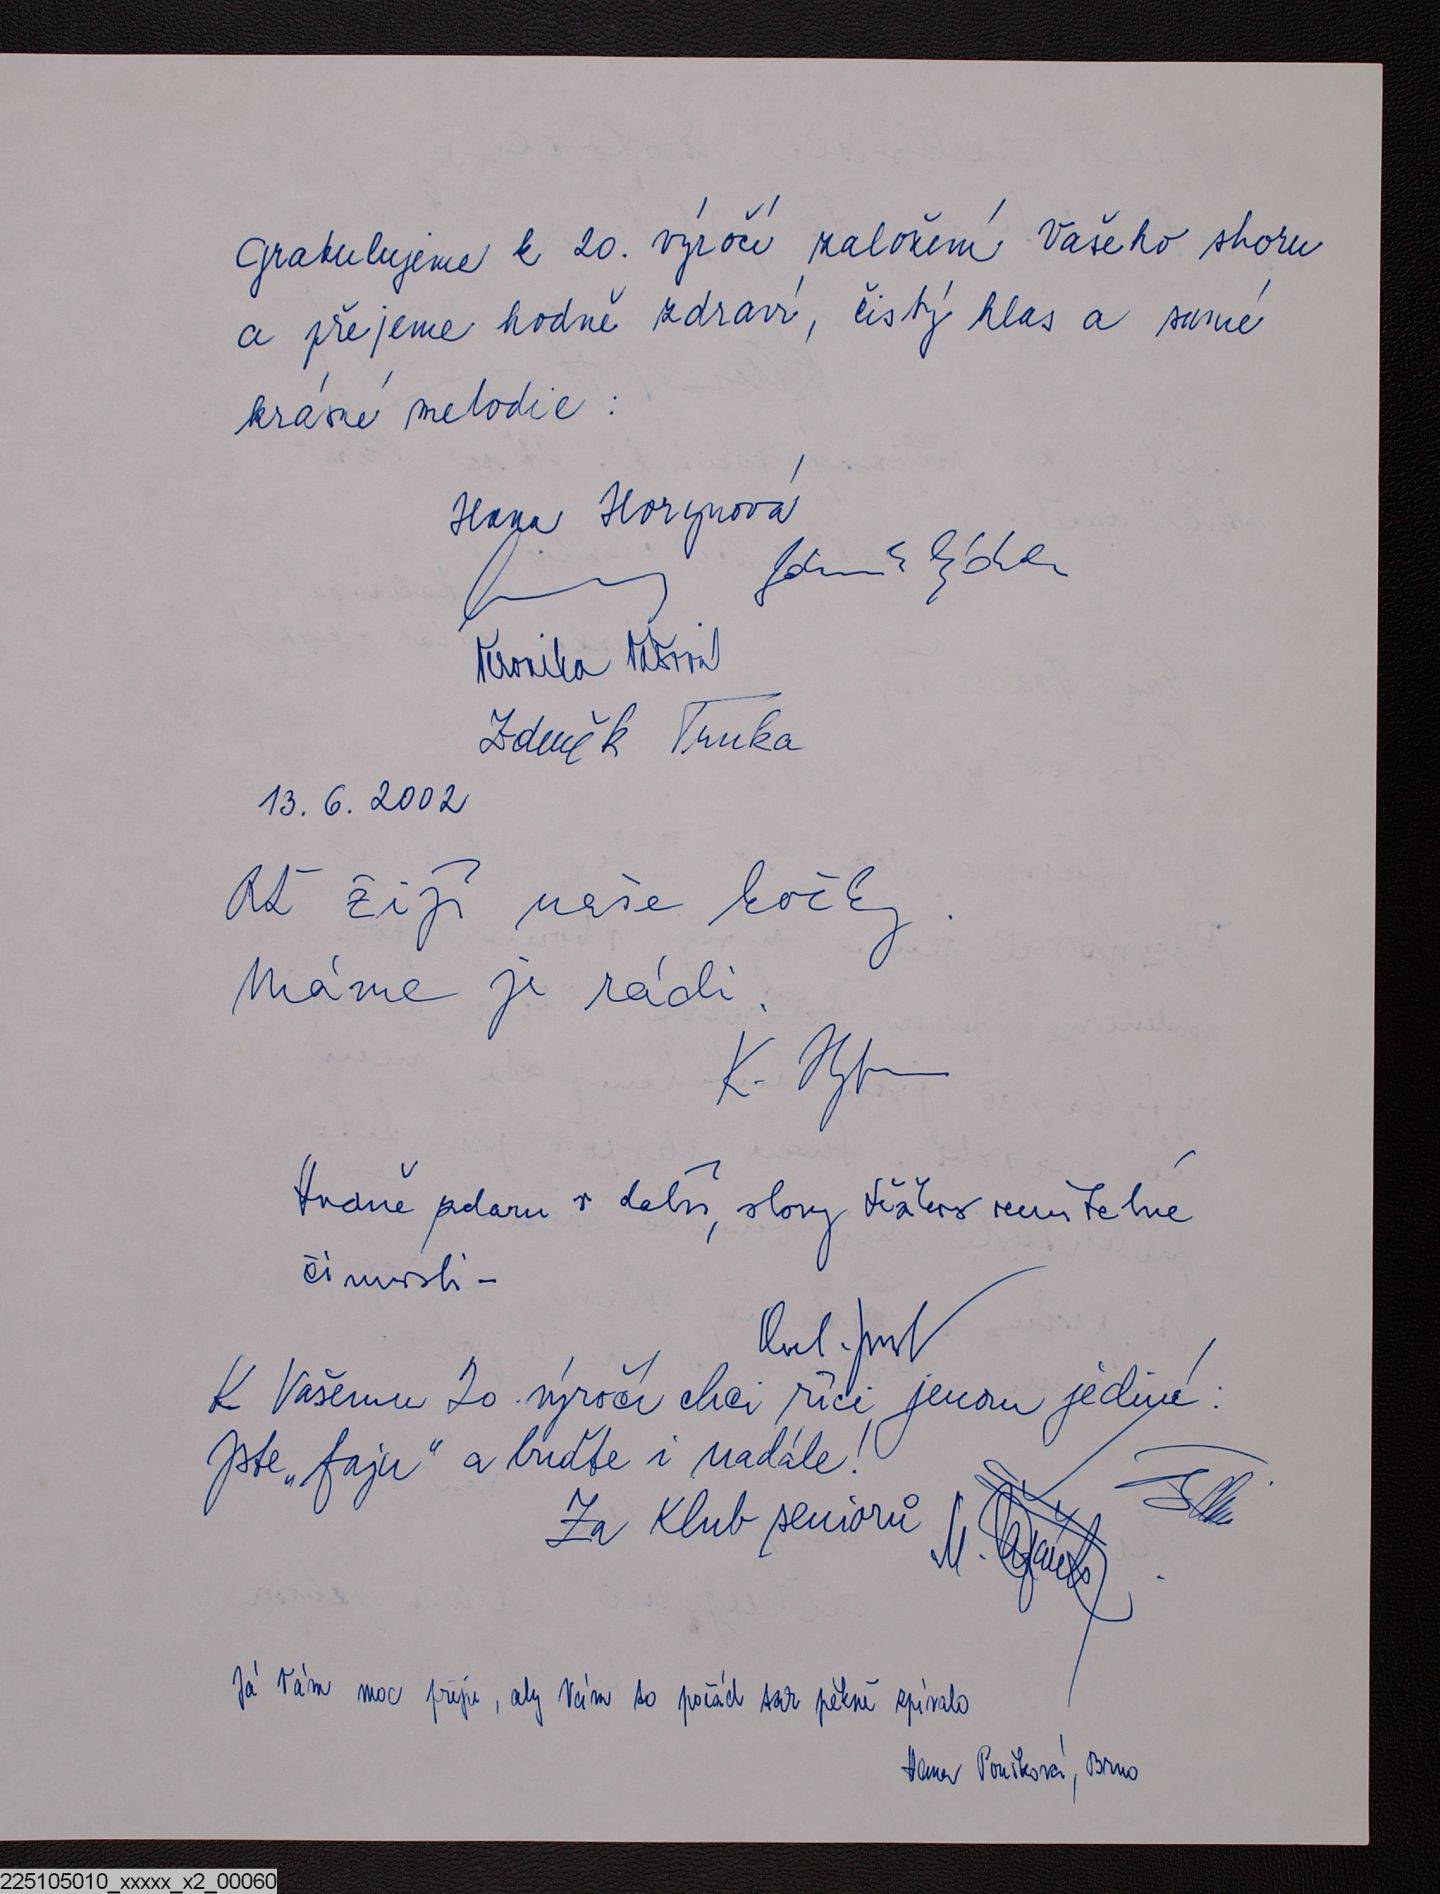 Gratulujeme k 20. výročí založení Vašeho sboru
a přejeme hodně zdraví, čistý hlas a samé
krásné melodie :
Hana Horynová
Veronika
Zdeněk Trnka
13. 6. 2002
Ať žijí naše kočky.
Máme je rádi.
K.
Hodně zdaru v další, slovy těžko
činnosti –
K Vašemu 20. výročí chci říci jenom jediné :
Jste „fajn“ a buďte i nadále!
Za Klub seniorů M.
Já Vám moc přeju, aby Vám to pořád tak pěkně zpívalo
Hana Poníková, Brno
225105010_xxxxx_x2_00060